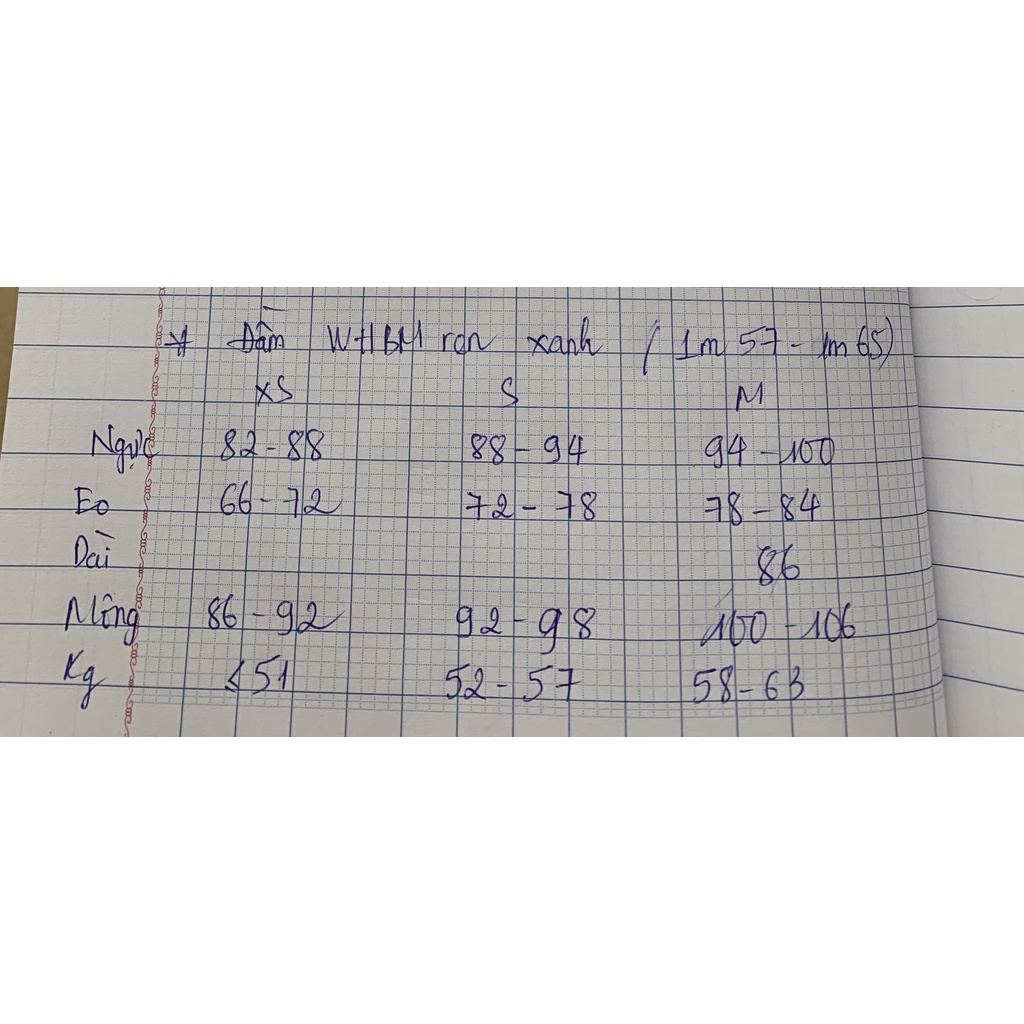 * Đầm WHBM ren xanh (1m57 - 1m65)
XS S M
Ngực 82-88 88-94 94-100
Eo 66-72 72-78 78-84
Dài 86
Mông 86-92 92-98 100-106
Kg ≤51 52-57 58-63